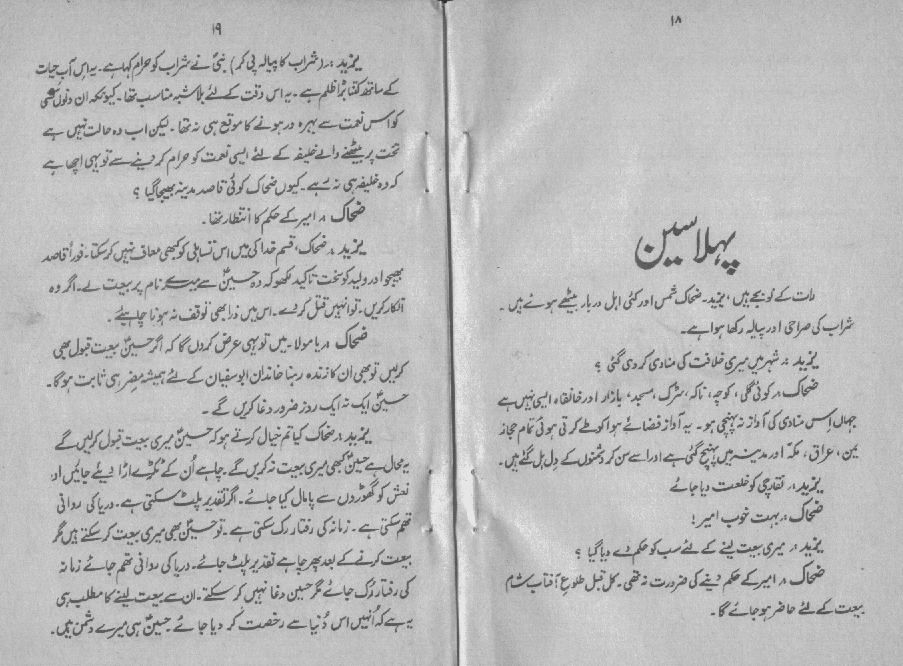 ۱۸
پہلا سین
رات کے نو بجے ہیں، یزید۔ ضحاک شمس اور کئی اہل دربار بیٹھے ہوئے ہیں۔
شراب کی صراحی اور پیالہ رکھا ہوا ہے۔
یزید :۔ شہر میں میری خلافت کی منادی کر دی گئی ؟
ضحاک :۔ کوئی گلی، کوچہ، ناکہ، سڑک، مسجد، بازار اور خانقاہ ایسی نہیں ہے
جہاں اس منادی کی آواز نہ پہنچی ہو۔ یہ آواز فضائے ہوا کو طے کرتی ہوئی تمام حجاز
یمن، عراق، مکہ اور مدینہ میں پہنچ گئی ہے اور اسے سن کر دشمنوں کے دل ہل گئے ہیں۔
یزید :۔ نقارچی کو خلعت دیا جائے
ضحاک :۔ بہت خوب امیر!
یزید :۔ میری بیعت لینے کے لئے سب کو حکم دے دیا گیا ؟
ضحاک :۔ امیر کے حکم دینے کی ضرورت نہ تھی۔ کل قبل طلوع آفتاب شام
بیعت کے لئے حاضر ہو جائے گا۔
۱۹
یزید :۔ (شراب کا پیالہ پی کر) نبیؐ نے شراب کو حرام کہا ہے۔ یہ اس آب حیات
کے ساتھ کتنا بڑا ظلم ہے۔ یہ اس وقت کے لئے بلا شبہ مناسب تھا۔ کیونکہ ان دنوں کسی
کو اس نعمت سے بہرہ ور ہونے کا موقع ہی نہ تھا۔ لیکن اب وہ حالت نہیں ہے
تخت پر بیٹھنے والے خلیفہ کے لئے ایسی نعمت کو حرام کر دینے سے تو یہی اچھا ہے
کہ وہ خلیفہ ہی نہ رہے۔ کیوں ضحاک کوئی قاصد مدینہ بھیجا گیا ؟
ضحاک :۔ امیر کے حکم کا انتظار تھا۔
یزید :۔ ضحاک، قسم خدا کی میں اس تساہلی کو کبھی معاف نہیں کر سکتا۔ فوراً قاصد
بھیجو اور ولید کو سخت تاکید لکھو کہ وہ حسینؓ سے میرے نام پر بیعت لے۔ اگر وہ
انکار کریں۔ تو انہیں قتل کر دے۔ اس میں ذرا بھی توقف نہ ہونا چاہیئے۔
ضحاک :۔ یا مولا۔ میں تو یہی عرض کروں گا کہ اگر حسینؓ بیعت قبول بھی
کر لیں تو بھی ان کا زندہ رہنا خاندان ابو سفیان کے لئے ہمیشہ مضر ہی ثابت ہوگا۔
حسینؓ ایک نہ ایک روز ضرور دغا کریں گے۔
یزید :۔ ضحاک کیا تم خیال کرتے ہو کہ حسینؓ میری بیعت قبول کر لیں گے
یہ محال ہے حسینؓ کبھی میری بیعت نہ کریں گے۔ چاہے اُن کے ٹکڑے اڑا دیئے جائیں اور
نعش کو گھوڑوں سے پامال کیا جائے۔ اگر تقدیر پلٹ سکتی ہے۔ دریا کی روانی
تھم سکتی ہے۔ زمانہ کی رفتار رک سکتی ہے۔ تو حسینؓ بھی میری بیعت کر سکتے ہیں مگر
بیعت کرنے کے بعد پھر چاہے تقدیر پلٹ جائے۔ دریا کی روانی تھم جائے زمانہ
کی رفتار رُک جائے مگر حسین دغا نہیں کر سکتے۔ ان سے بیعت لینے کا مطلب ہی
یہ ہے کہ اُنہیں اس دُنیا سے رخصت کر دیا جائے۔ حسینؓ ہی میرے دشمن ہیں۔